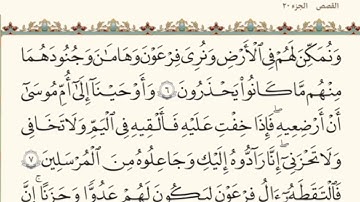 القصص الجزء ٢٠
وَنُمَكِّنَ لَهُمْ فِي الْأَرْضِ وَنُرِيَ فِرْعَوْنَ وَهَامَانَ وَجُنُودَهُمَا
مِنْهُم مَّا كَانُوا يَحْذَرُونَ ٦ وَأَوْحَيْنَا إِلَىٰ أُمِّ مُوسَىٰ
أَنْ أَرْضِعِيهِ ۖ فَإِذَا خِفْتِ عَلَيْهِ فَأَلْقِيهِ فِي الْيَمِّ وَلَا تَخَافِي
وَلَا تَحْزَنِي ۖ إِنَّا رَادُّوهُ إِلَيْكِ وَجَاعِلُوهُ مِنَ الْمُرْسَلِينَ ٧
فَالْتَقَطَهُ آلُ فِرْعَوْنَ لِيَكُونَ لَهُمْ عَدُوًّا وَحَزَنًا ۗ إِنَّ